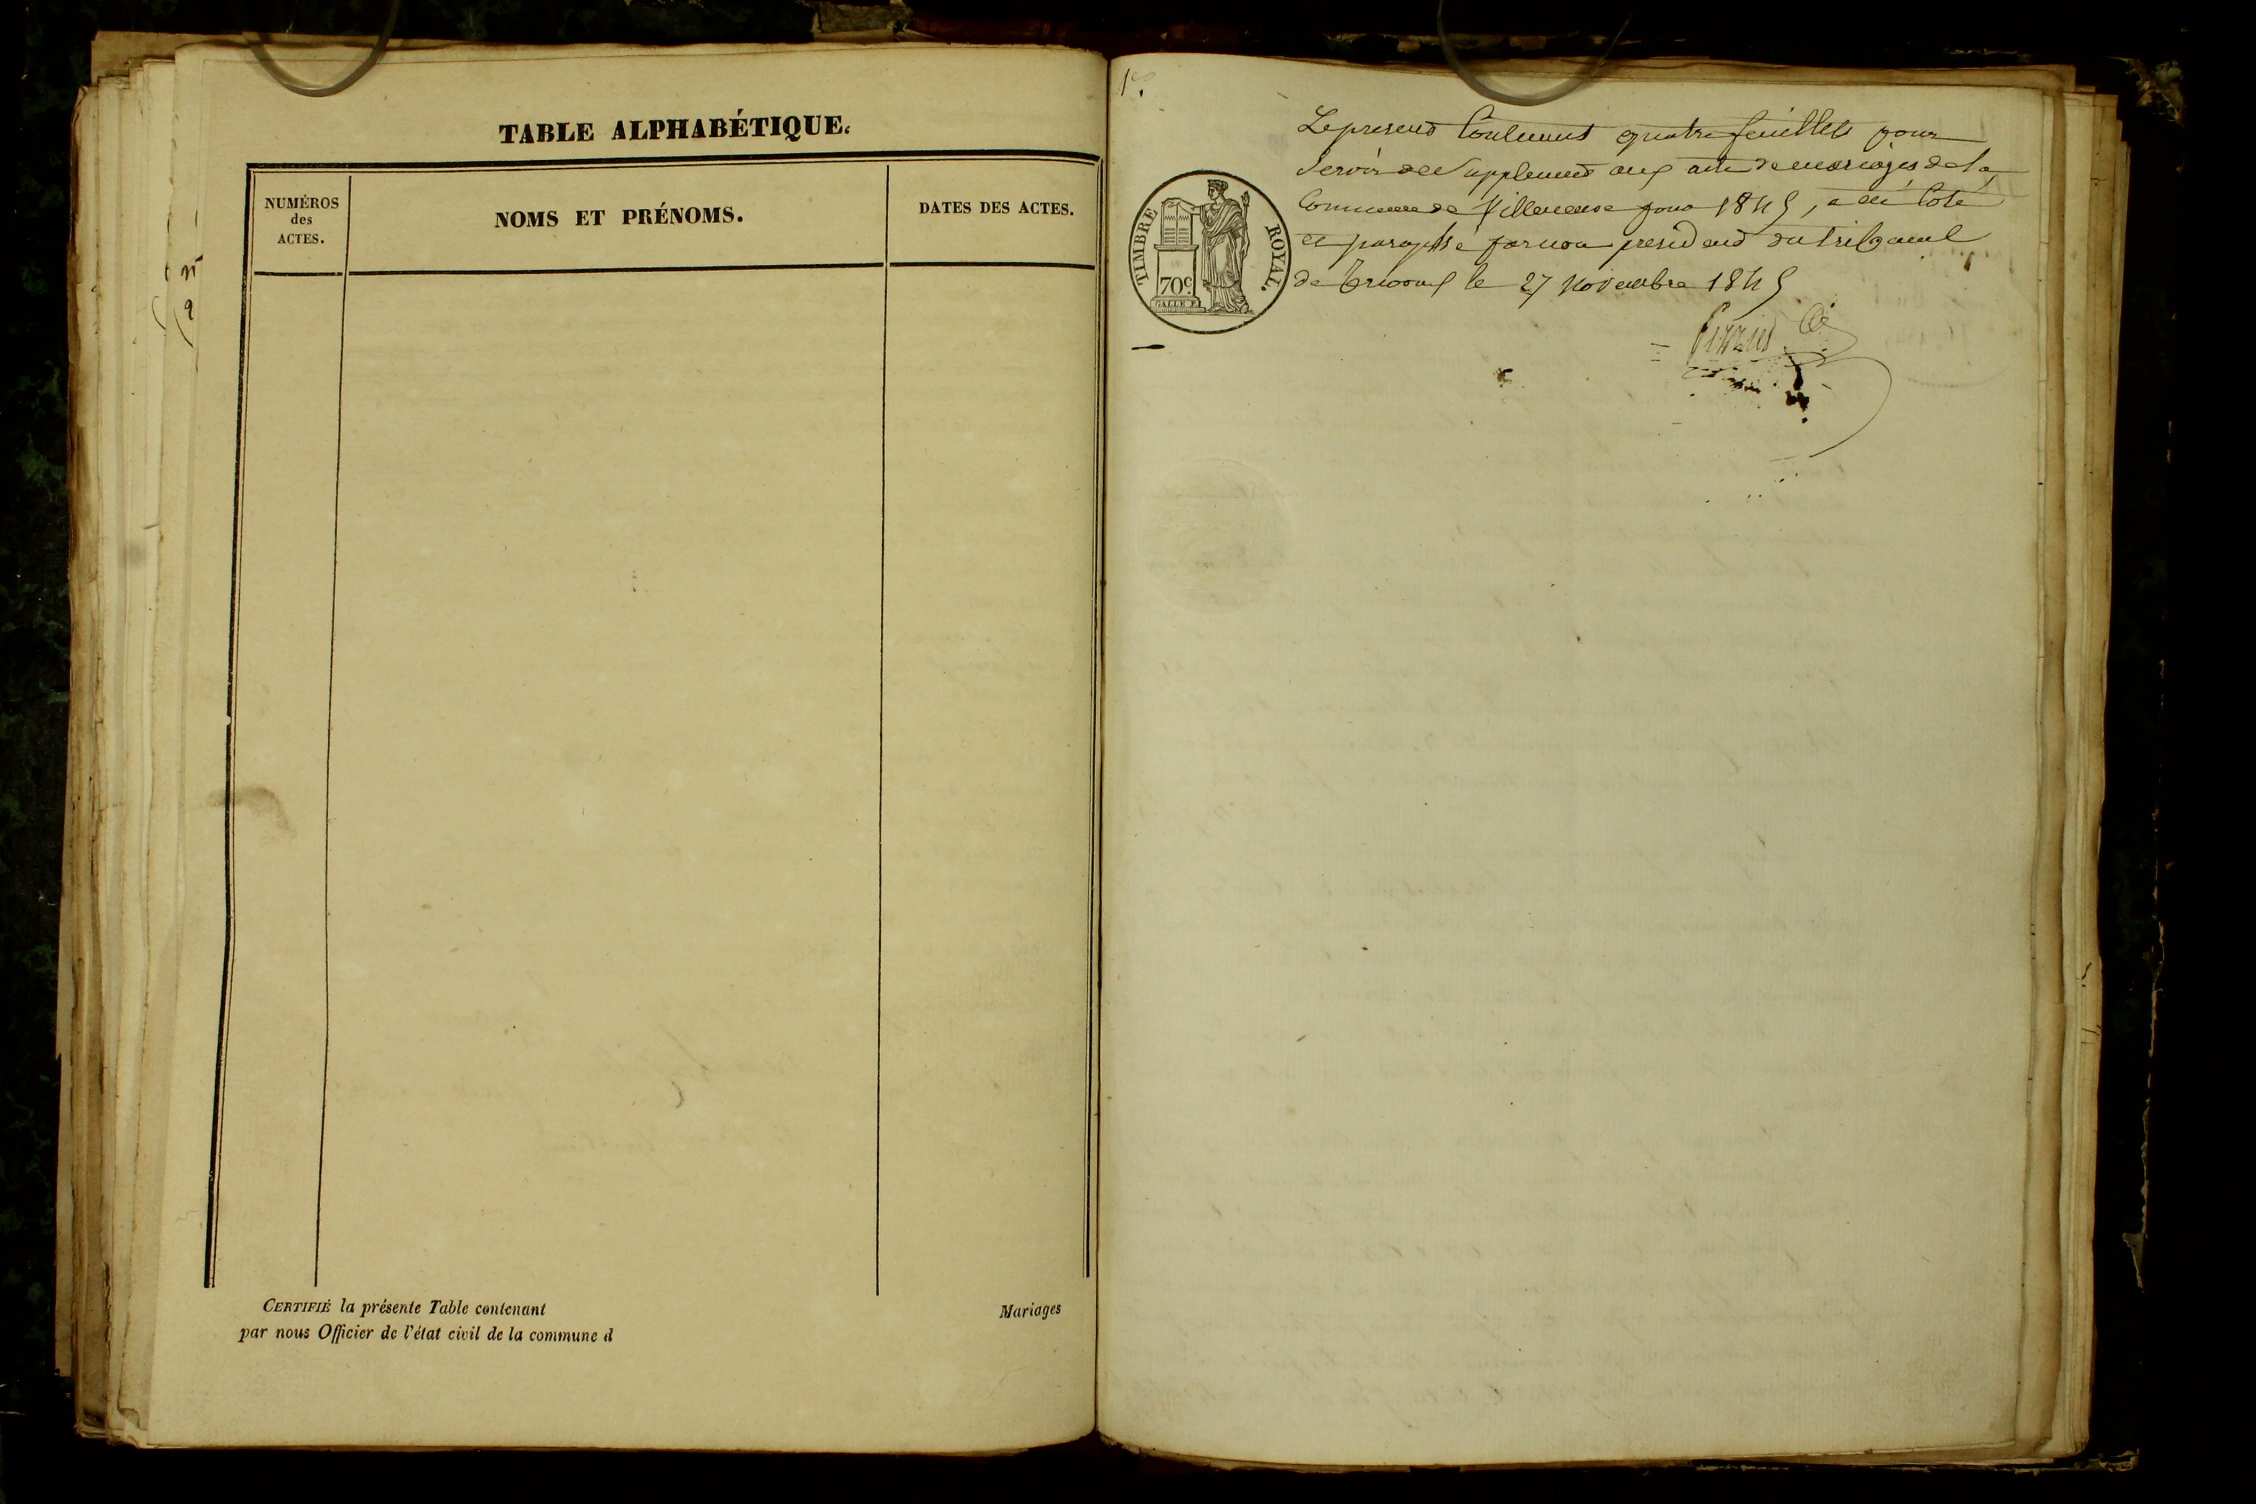 TABLE ALPHABÉTIQUE.
NUMÉROS
des
ACTES.
NOMS ET PRÉNOMS.
DATES DES ACTES.
CERTIFIÉ la présente Table contenant
Mariages
par nous Officier de l'état civil de la commune d
1er.
TIMBRE ROYAL.
70c.
Le present Contenant quatre feuillets pour
Servir de Supplement aux acte de mariages de la
Commune de pour 1845, a été Coté
et paraphé par nous president du tribunal
de le 27 Novembre 1845